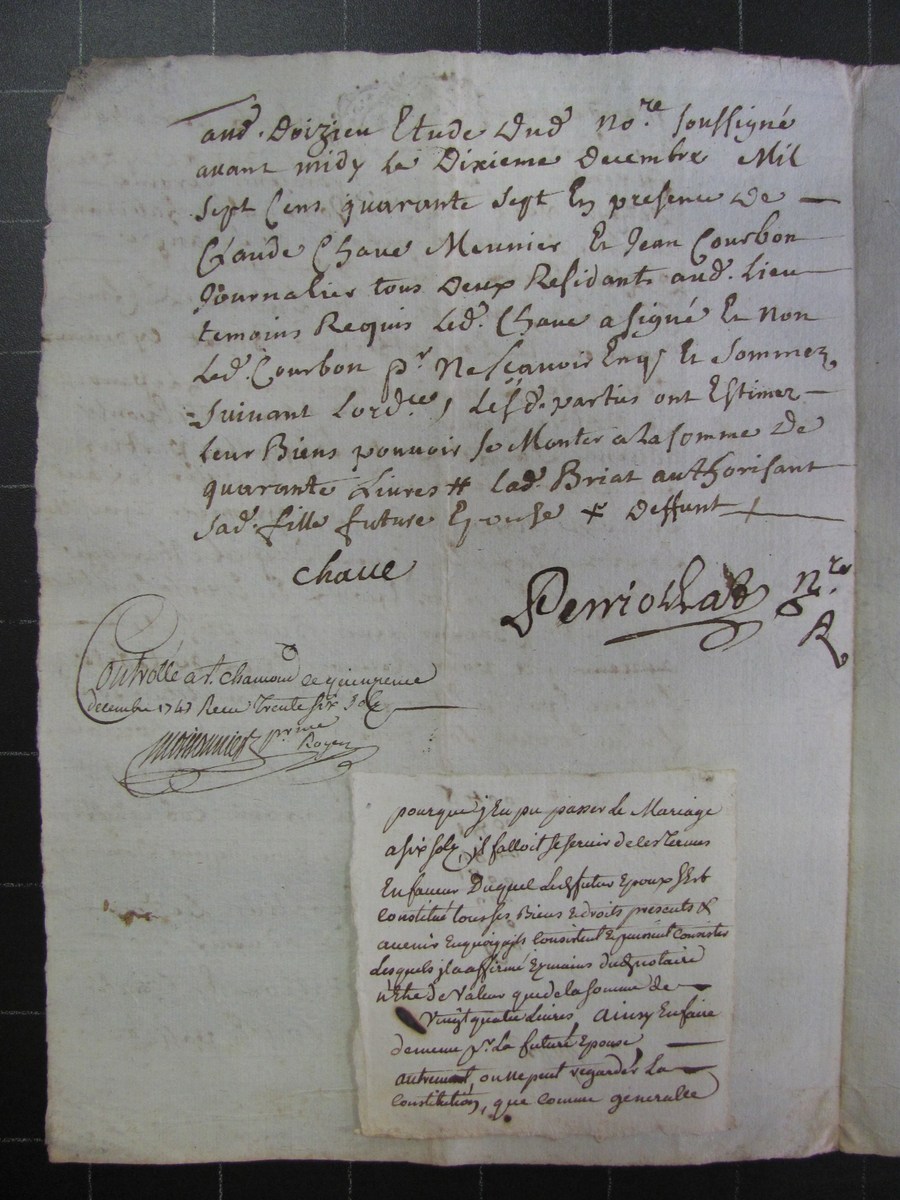 aud. Doizieu Etude dud. no.re soussigné
avant midy le Dixieme decembre Mil
sept Cens quarante sept En presence de
Claude Chave Meunier Et Jean Courbon
Journalier tous deux Residants aud. Lieu
temoins Requis Led. Chave a signé Et non
Led. Courbon p.r ne scavoir Enq. Et sommez
suivant Lord.ce, Lesd. parties ont Estimez
leur Biens pouvoir se Monter a la somme de
quarante Livres # Lad. Briat authorisant
sad. fille future Epouse x deffunt x
chave
Perriollat n.re
R
Controllé a s.t chamond le quinzieme
decembre 1747 Receu Trente six sols
pour que j'Eu pu passer le Mariage
a six sols, jl falloit se servir de ces termes
En faveur Duquel led. futur Epoux s'Est
constitué tous ses Biens & droits presents &
avenir En quoy qu'jls consistent & puissent consister
desquels jl a affirmé Ez mains dud. notaire
n'Etre de valeur que de la somme de
vingt quatre Livres, ainsy En faire
de meme p.r la future Epouse
autrement, on ne peut regarder la
constitution, que comme generalle